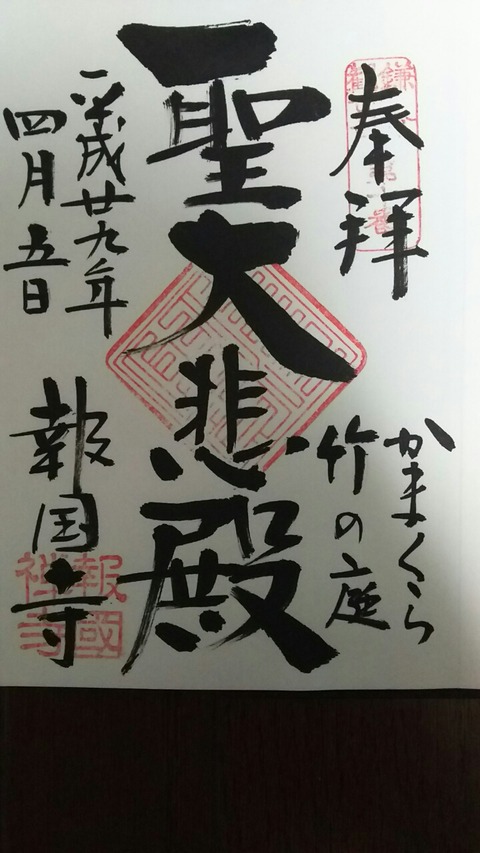 奉拝
かまくら
竹の庭
聖大悲殿
平成廿九年
四月五日
報国寺
報國
禅寺